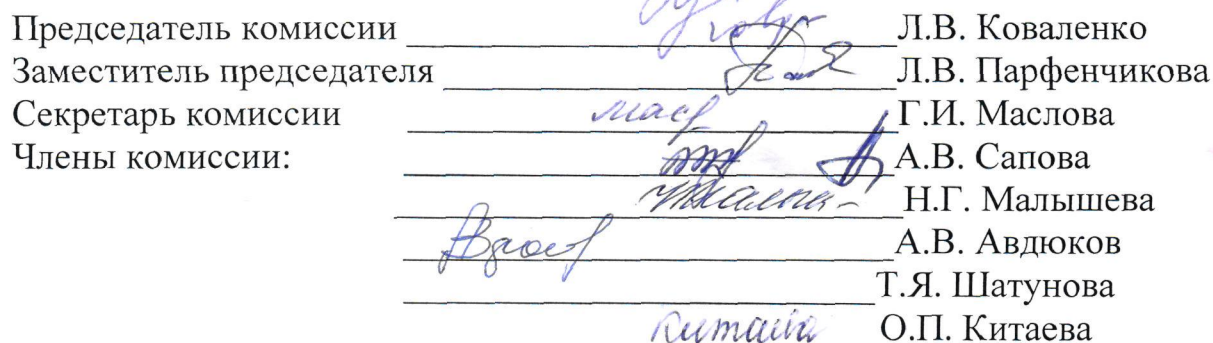 Председатель комиссии Л.В. Коваленко
Заместитель председателя Л.В. Парфенчикова
Секретарь комиссии Г.И. Маслова
Члены комиссии: А.В. Сапова
Н.Г. Малышева
А.В. Авдюков
Т.Я. Шатунова
О.П. Китаева